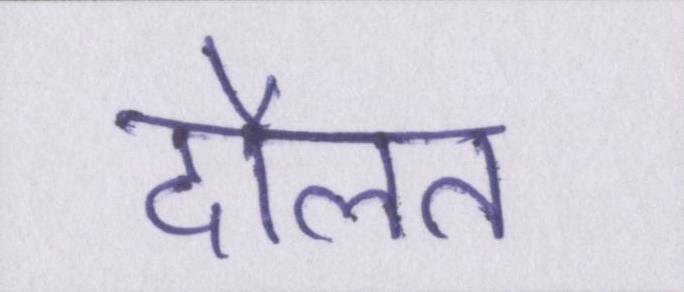 दौलत